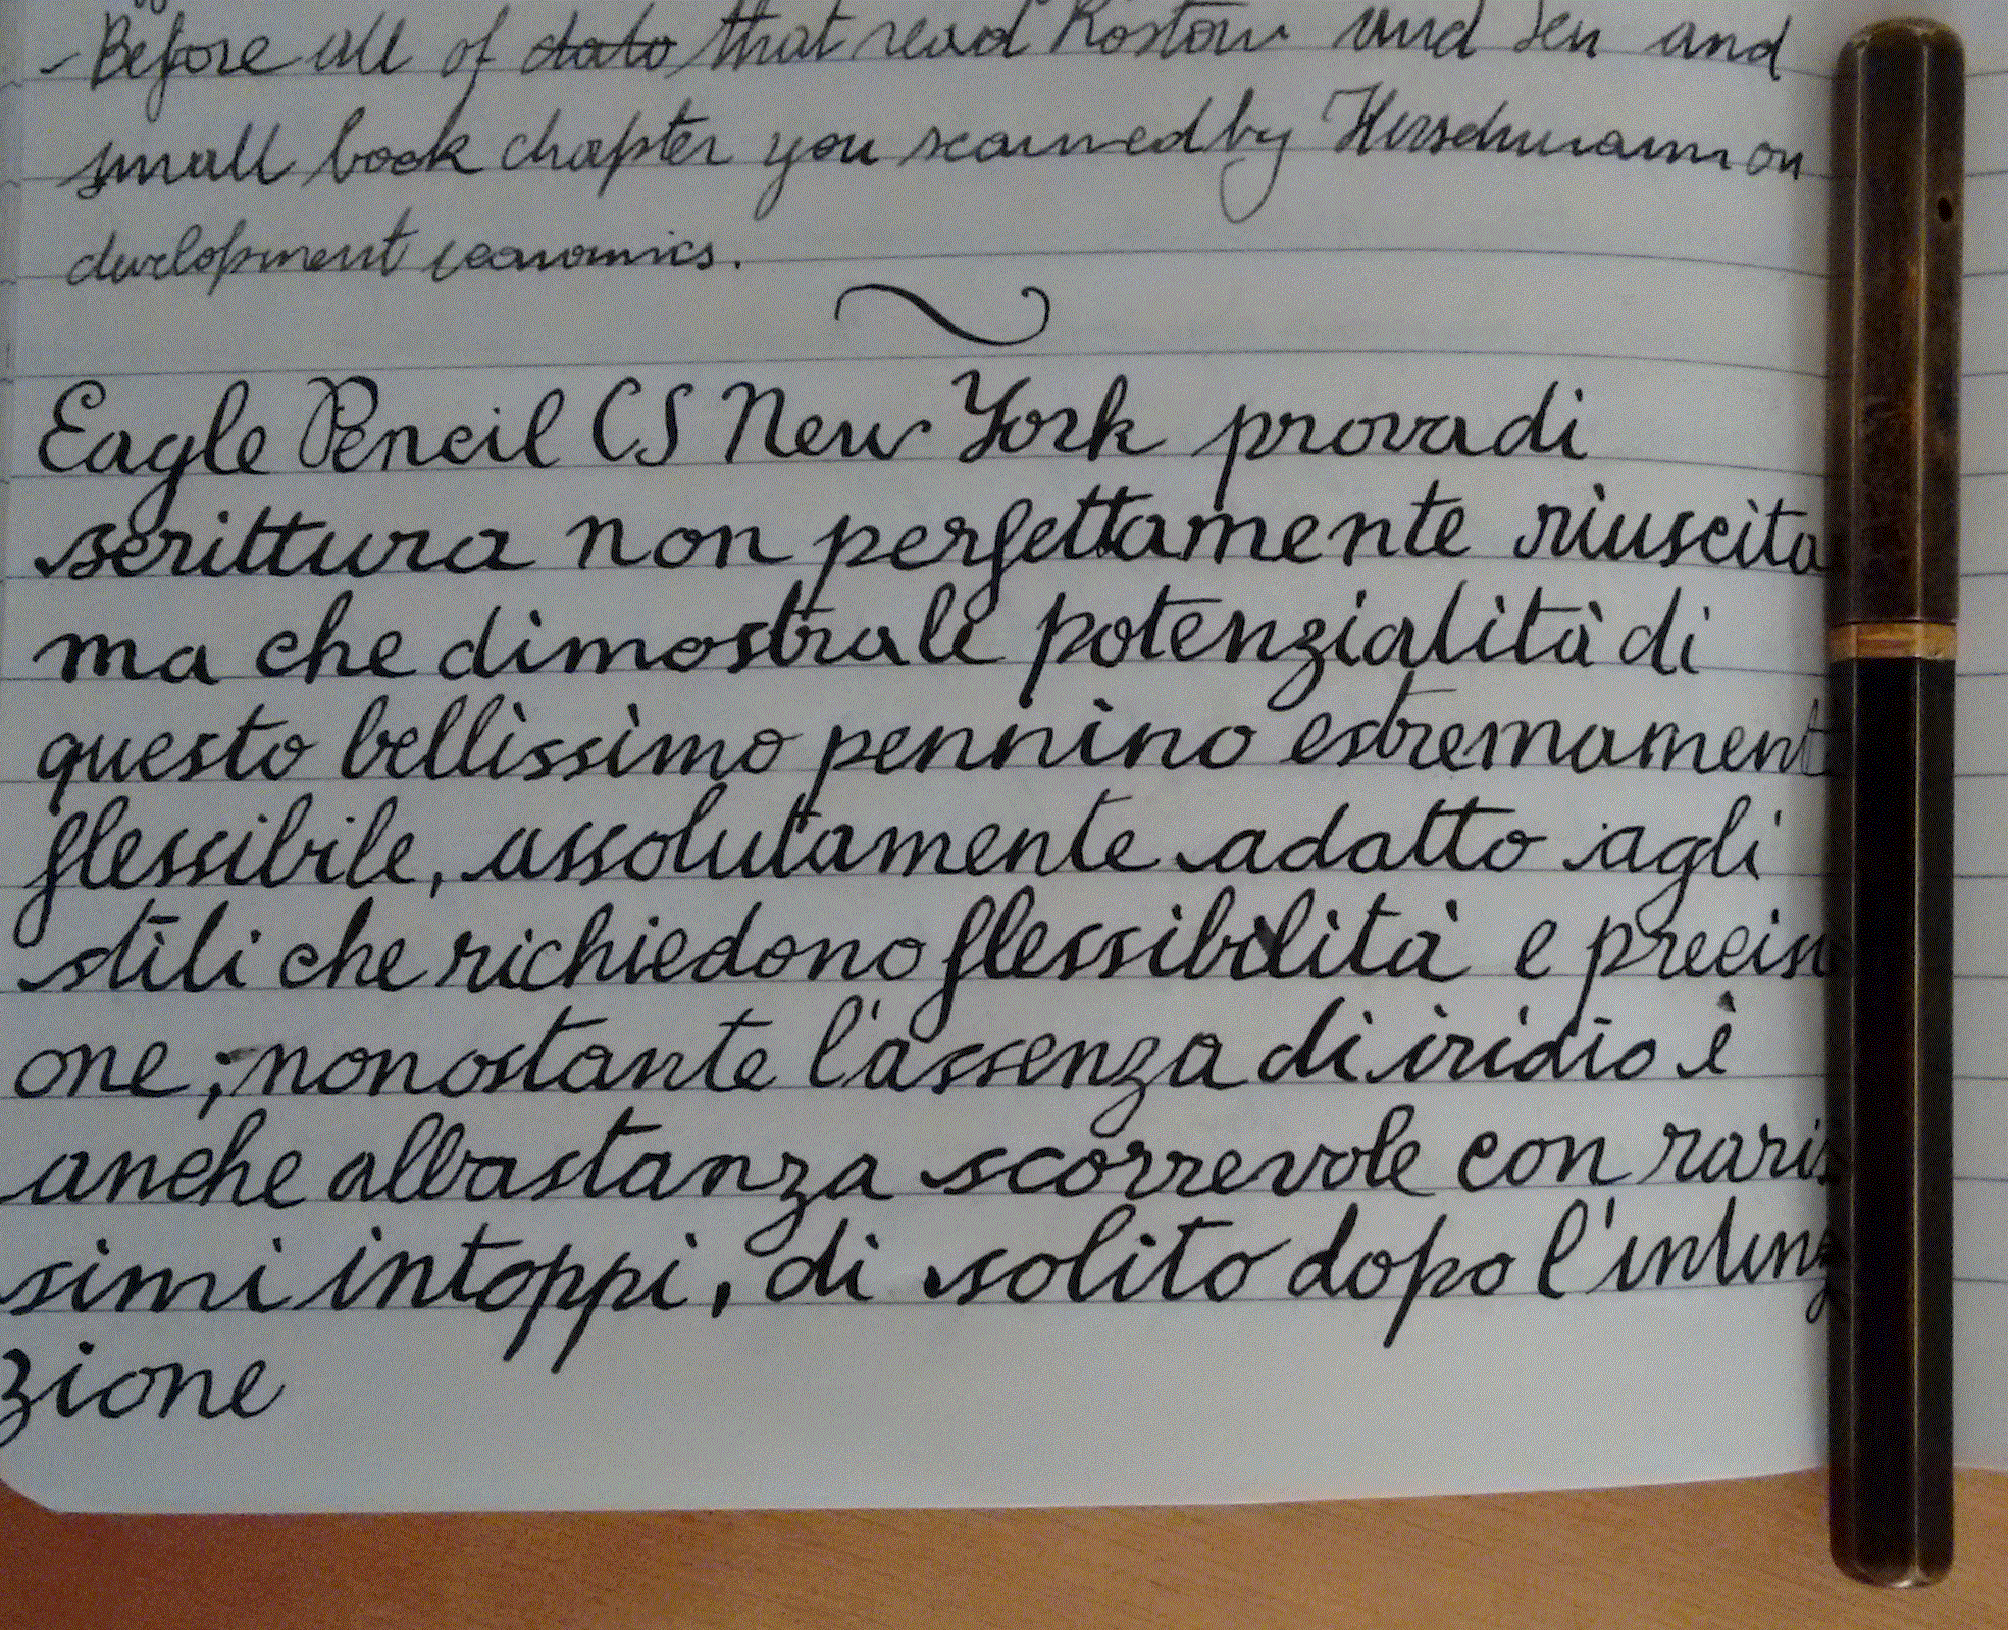 - Before all of dato that read Rostow and Sen and
small book chapter you scanned by Hirschmann on
development economics.
Eagle Pencil CS New York prova di
scrittura non perfettamente riuscita
ma che dimostra le potenzialità di
questo bellissimo pennino estremament
flessibile, assolutamente adatto agli
stili che richiedono flessibilità e precisi
one, nonostante l'assenza di iridio è
anche abbastanza scorrevole con raris
simi intoppi, di solito dopo l'intin
zione